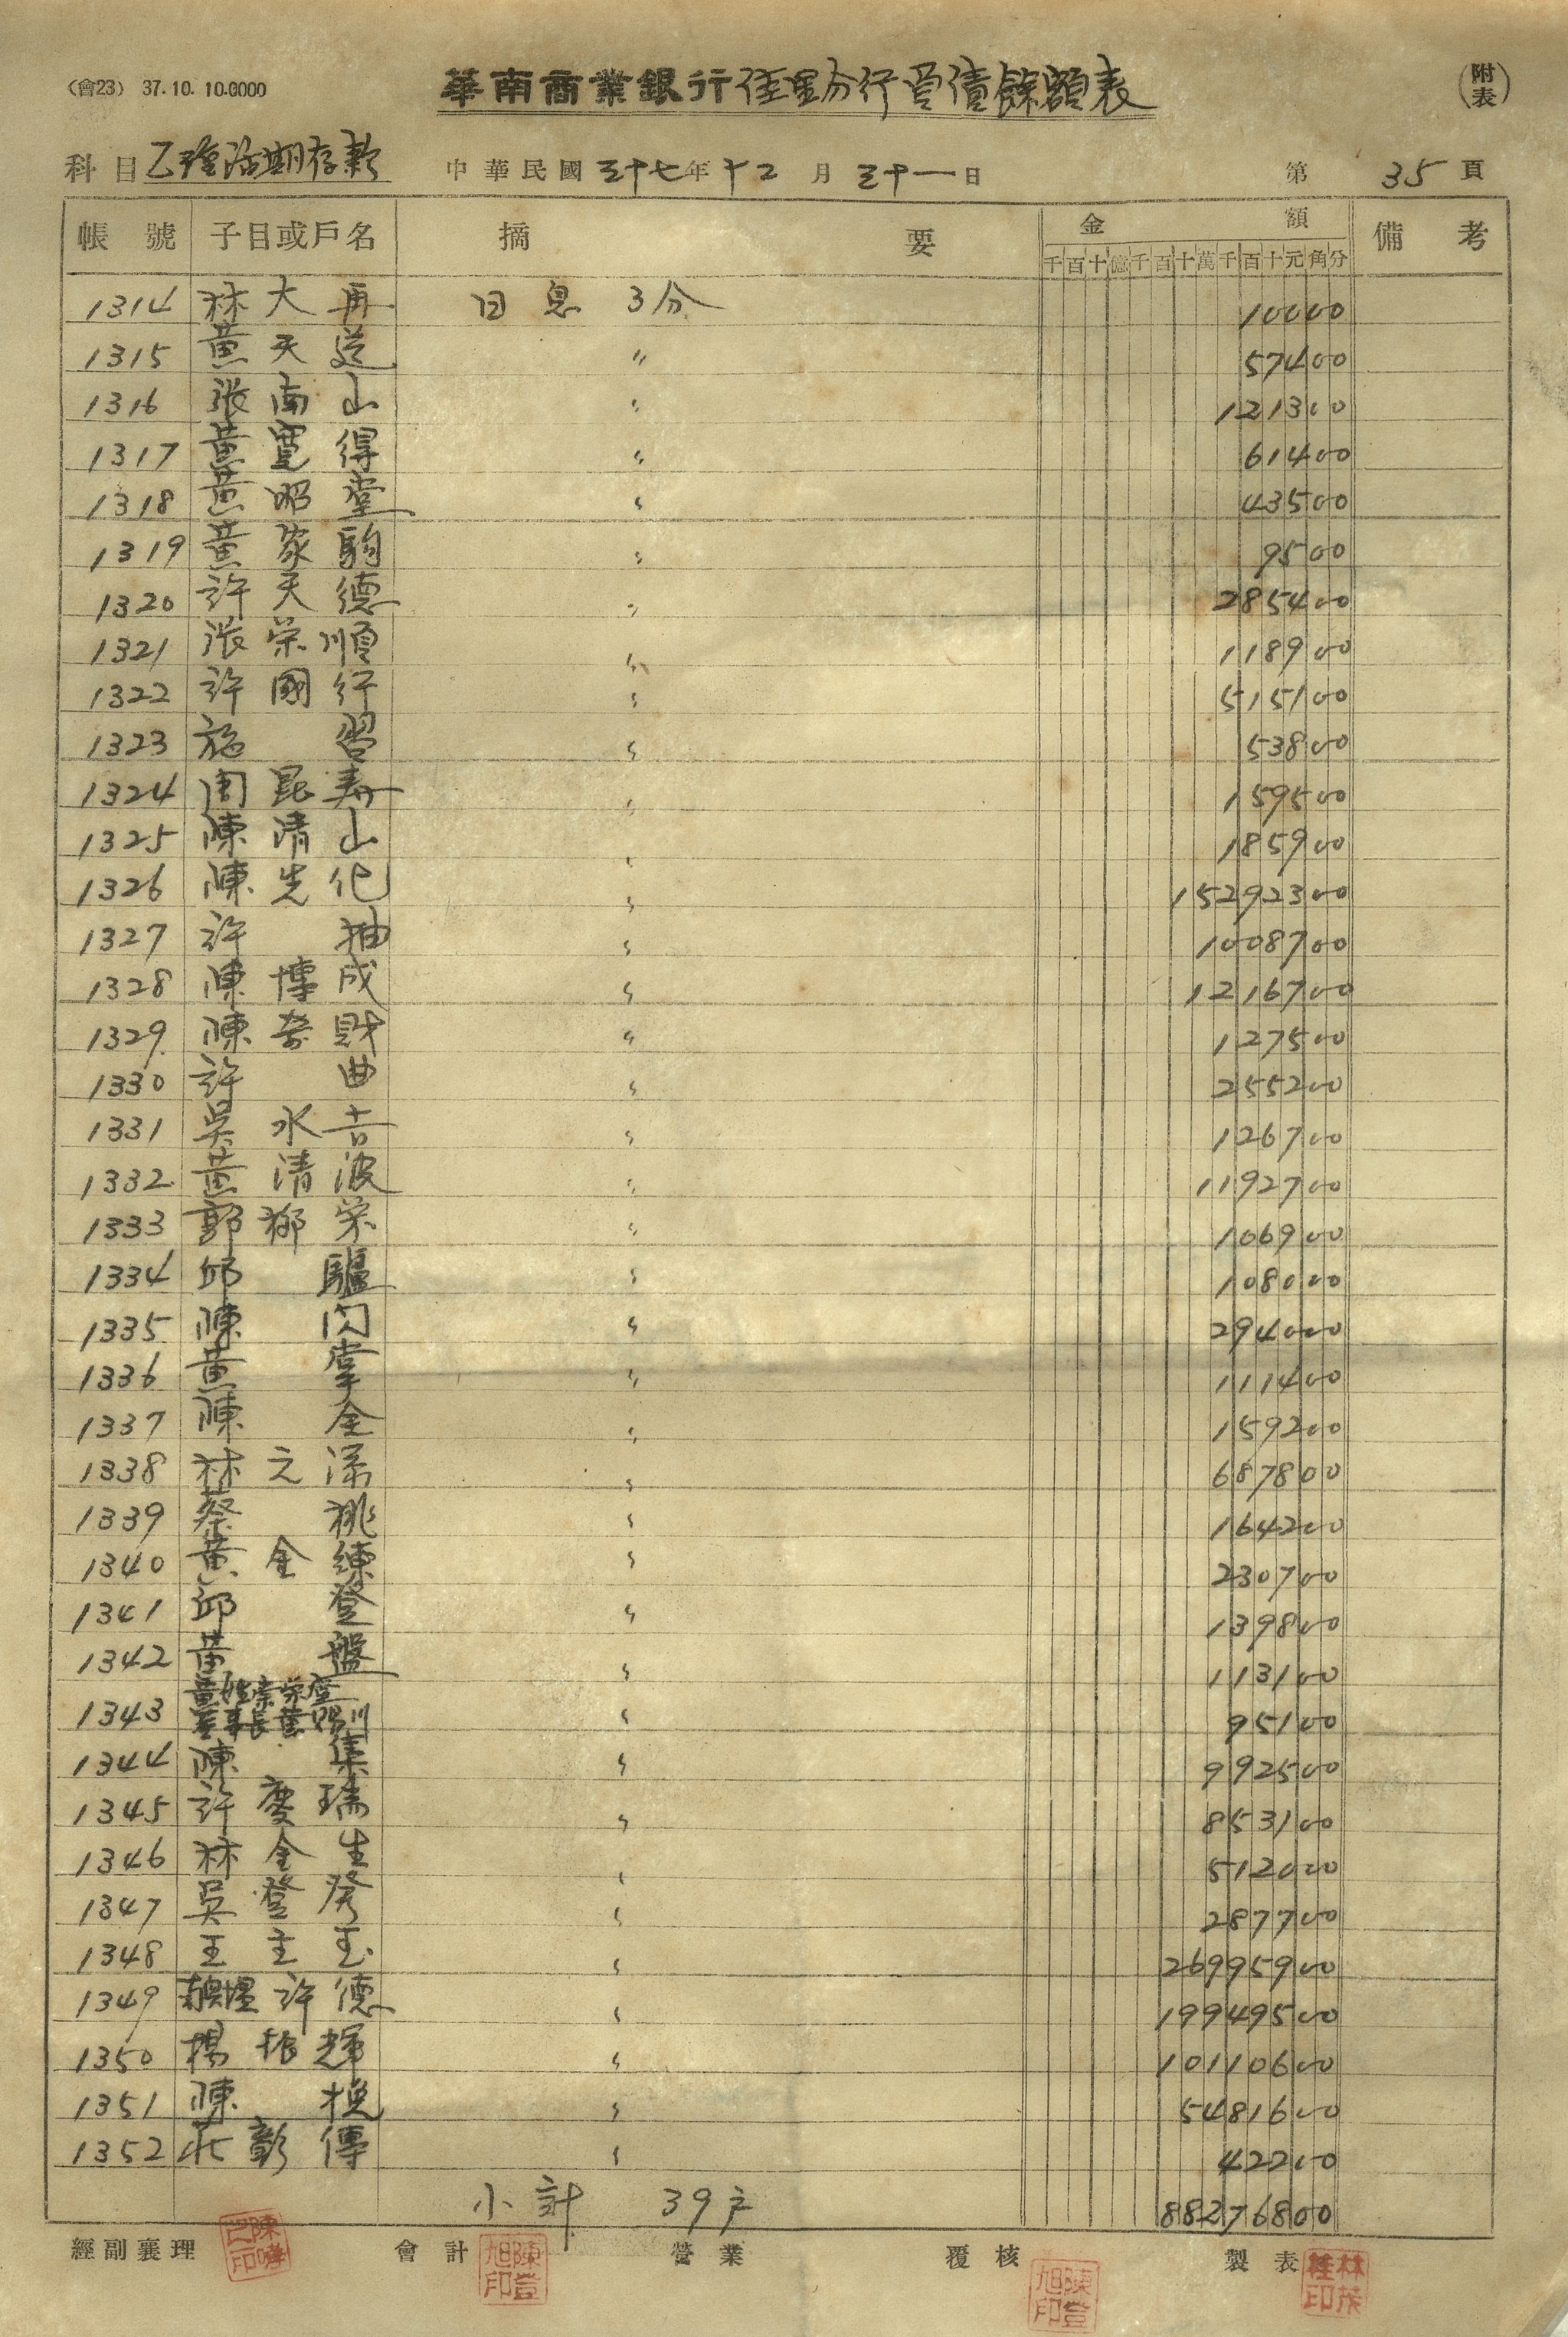 (會23) 37.10. 10.0000
華南商業銀行佳里分行負債餘額表
(附表)
科目 乙種活期存款 中華民國三十七年十二月三十一日 第35頁
帳號 子目或戶名 摘要 金額 備考
千百十億千百十萬千百十元角分
1314 林大再 日息 3分 10000
1315 黃天送 〃 57400
1316 張南山 〃 121300
1317 黃寬得 〃 61400
1318 黃昭堂 〃 43500
1319 黃家駒 〃 9500
1320 許天德 〃 285400
1321 張栄順 〃 118900
1322 許國行 〃 515100
1323 施習 〃 53800
1324 周昆寿 〃 159500
1325 陳清山 〃 185900
1326 陳先化 〃 15292300
1327 許抽 〃 1008700
1328 陳博成 〃 1216700
1329 陳財 〃 127500
1330 許曲 〃 255200
1331 吳水吉 〃 126700
1332 黃清波 〃 1192700
1333 郭栄 〃 106900
1334 邱驢 〃 108000
1335 陳閃 〃 294000
1336 黃掌 〃 111400
1337 陳全 〃 159200
1338 林元 〃 687800
1339 蔡桃 〃 164200
1340 黃金練 〃 230700
1341 邱登 〃 139800
1342 黃盤 〃 113100
1343 黃姓崇栄堂 董事長黃 〃 95100
1344 陳集 〃 992500
1345 許慶瑞 〃 853100
1346 林金生 〃 512000
1347 吳登癸 〃 287700
1348 王主玉 〃 26995900
1349 許德 〃 19949500
1350 楊振輝 〃 10110600
1351 陳換 〃 5481600
1352 莊彰傳 〃 42200
小計 39戶 88276800
經副襄理 會計 營業 覆核 製表
陳登旭印
陳登旭印
林茂桂印